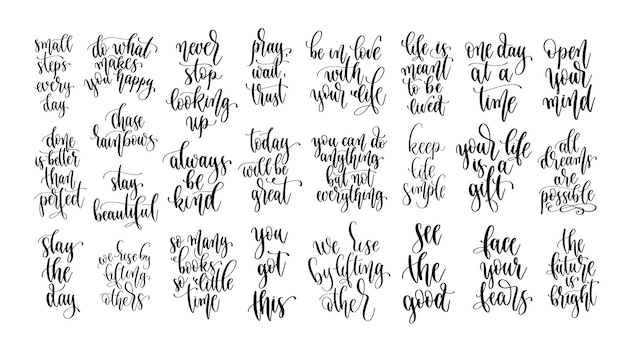 small
steps
every
day
do what
makes
you happy
never
stop
looking
up
pray
wait
trust
be in love
with
your life
life is
meant
to be
lived
one day
at a
time
open
your
mind
done
is better
than
perfect
chase
rainbows
stay
beautiful
always
be
kind
today
will be
great
you can do
anything
but not
everything
keep
life
simple
your life
is a
gift
all
dreams
are
possible
slay
the
day
we rise by
lifting
others
so many
books
so little
time
you
got
this
we rise
by lifting
other
see
the
good
face
your
fears
the
future
is
bright